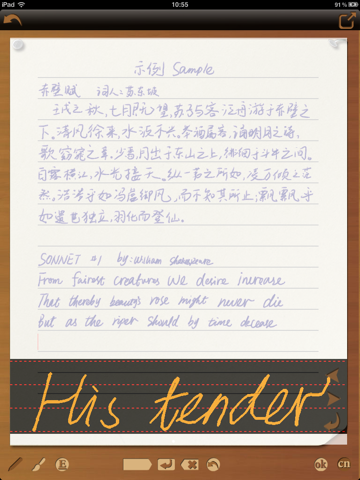 iPad 10:55 91%
示例 Sample
赤壁赋 词人:苏东坡
壬戌之秋,七月既望,苏子与客泛舟游于赤壁之
下。清风徐来,水波不兴。举酒属客,诵明月之诗,
歌窈窕之章。少焉,月出于东山之上,徘徊于斗牛之间。
白露横江,水光接天。纵一苇之所如,凌万顷之茫
然。浩浩乎如冯虚御风,而不知其所止;飘飘乎
如遗世独立,羽化而登仙。
SONNET #1 by: William Shakespeare
From fairest creatures We desire increase
That thereby beauty's rose might never die
But as the riper should by time decease
His tender
E ok cn